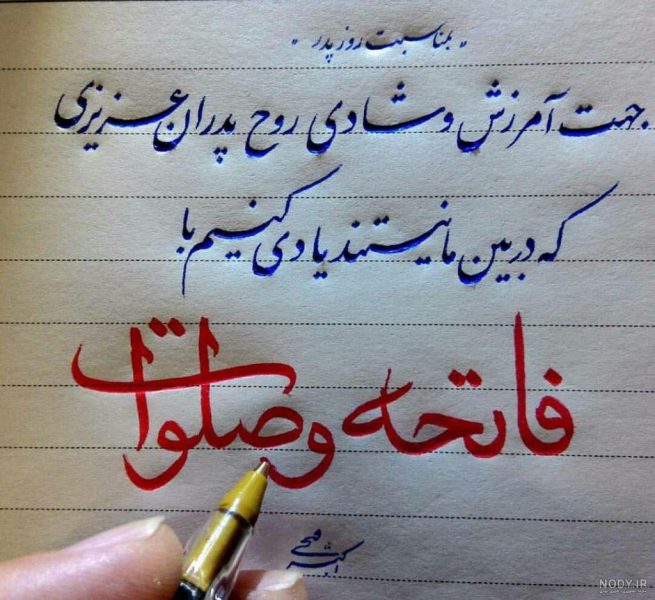 " بمناسبت روز پدر "
جهت آمرزش و شادی روح پدران عزیزی
که در بین ما نیستند یادی کنیم با
فاتحه و صلوات
NODY.IR